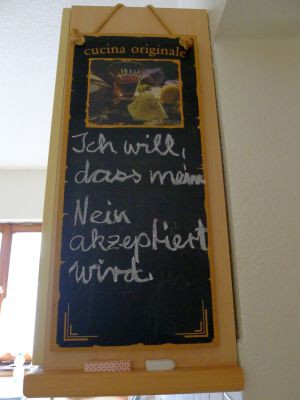 cucina originale
Ich will,
dass mein
Nein
akzeptiert
wird.